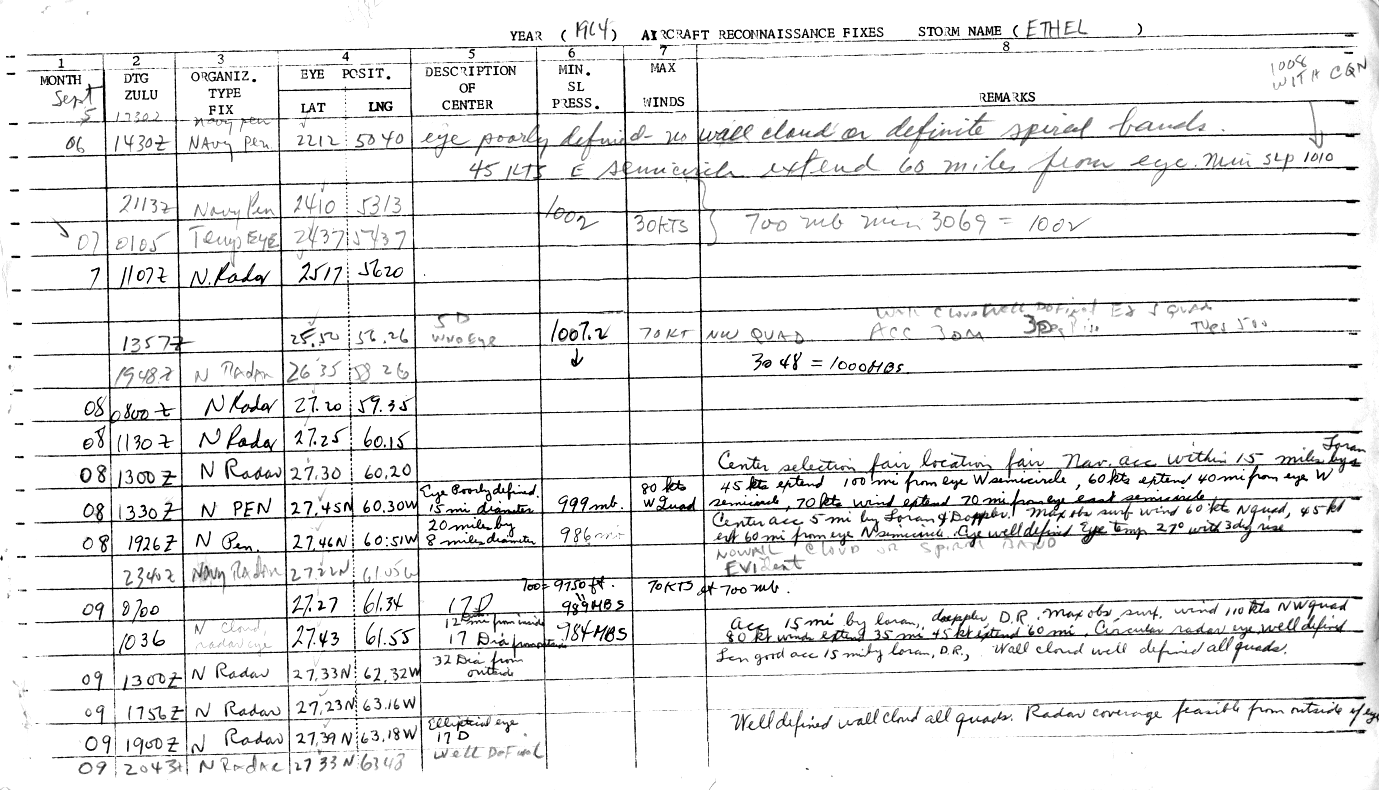 YEAR (1964) AIRCRAFT RECONNAISSANCE FIXES STORM NAME (ETHEL)
1 2 3 4 5 6 7 8
MONTH DTG ZULU ORGANIZ. TYPE FIX EYE POSIT. LAT LNG DESCRIPTION OF CENTER MIN. SL PRESS. MAX WINDS REMARKS
1008 WITH CQN
Sept
5 1730Z Navy pen
06 1430Z NAvy Pen 2212 5040 eye poorly defined - no wall cloud or definite spiral bands.
45 KTS E semicircle extend 60 miles from eye. Min SLP 1010
2113Z Navy Pen 2410 5313 1002 30KTS 700 mb min 3069 = 1002
07 0105 Temp EYE 2437 5437
7 1107Z N.Radar 2517 5620
1357Z 25.50 56.26 5D WNO Eye 1007.2 70KT NW QUAD ACC 30M
Wall Cloud Well Defined
↓ 3048 = 1000MBS
1948Z N Radar 26 35 58 26
08 0800Z N Radar 27.20 59.35
08 1130Z N Radar 27.25 60.15
08 1300Z N Radar 27.30 60.20 Center selection fair location fair Nav. acc within 15 miles by Loran
08 1330Z N PEN 27.45N 60.30W Eye Poorly defined. 15 mi diameter 999mb. 80 kts W Quad 45 kts extend 100 mi from eye W semicircle, 60 kts extend 40 mi from eye W
semicircle, 70 kts wind extend 70 mi from eye east semicircle
08 1926Z N Pen. 27.46N 60:51W 20 miles by 8 miles diameter 986 Center acc 5 mi by Loran & Doppler. Max obs surf wind 60 kts N quad, 45 kt
ext 60 mi from eye N semicircle. Eye well defined Eye temp 27° with 3deg rise
NO WALL CLOUD OR SPIRAL BAND
EVIdent
2340Z Navy Radar 27.22N 61.05W
700 = 9750 ft. 70KTS at 700 mb.
09 0700 27.27 61.34 17D 989MBS
1036 N Cloud, radar eye 27.43 61.55 12 mi from inside 17 Dia from outside 984MBS acc 15 mi by loran, doppler, D.R. Max obs surf. wind 110 kts NW quad
80 kt winds extend 35 mi 45 kt extend 60 mi, Circular radar eye, well defined
09 1300Z N Radar 27.33N 62.32W 32 Dia from outside good acc 15 mi by loran, D.R., Wall cloud well defined all quads.
09 1756Z N Radar 27.23N 63.16W
09 1900Z N Radar 27.39N 63.18W Elliptical eye 17D Well defined wall cloud all quads. Radar coverage feasible from outside of eye
09 2043Z N Radar 27 33 N 6348 Well Defined